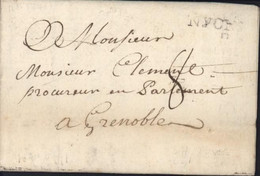 A Monsieur
Monsieur Clement
procureur en Parlement
a Grenoble